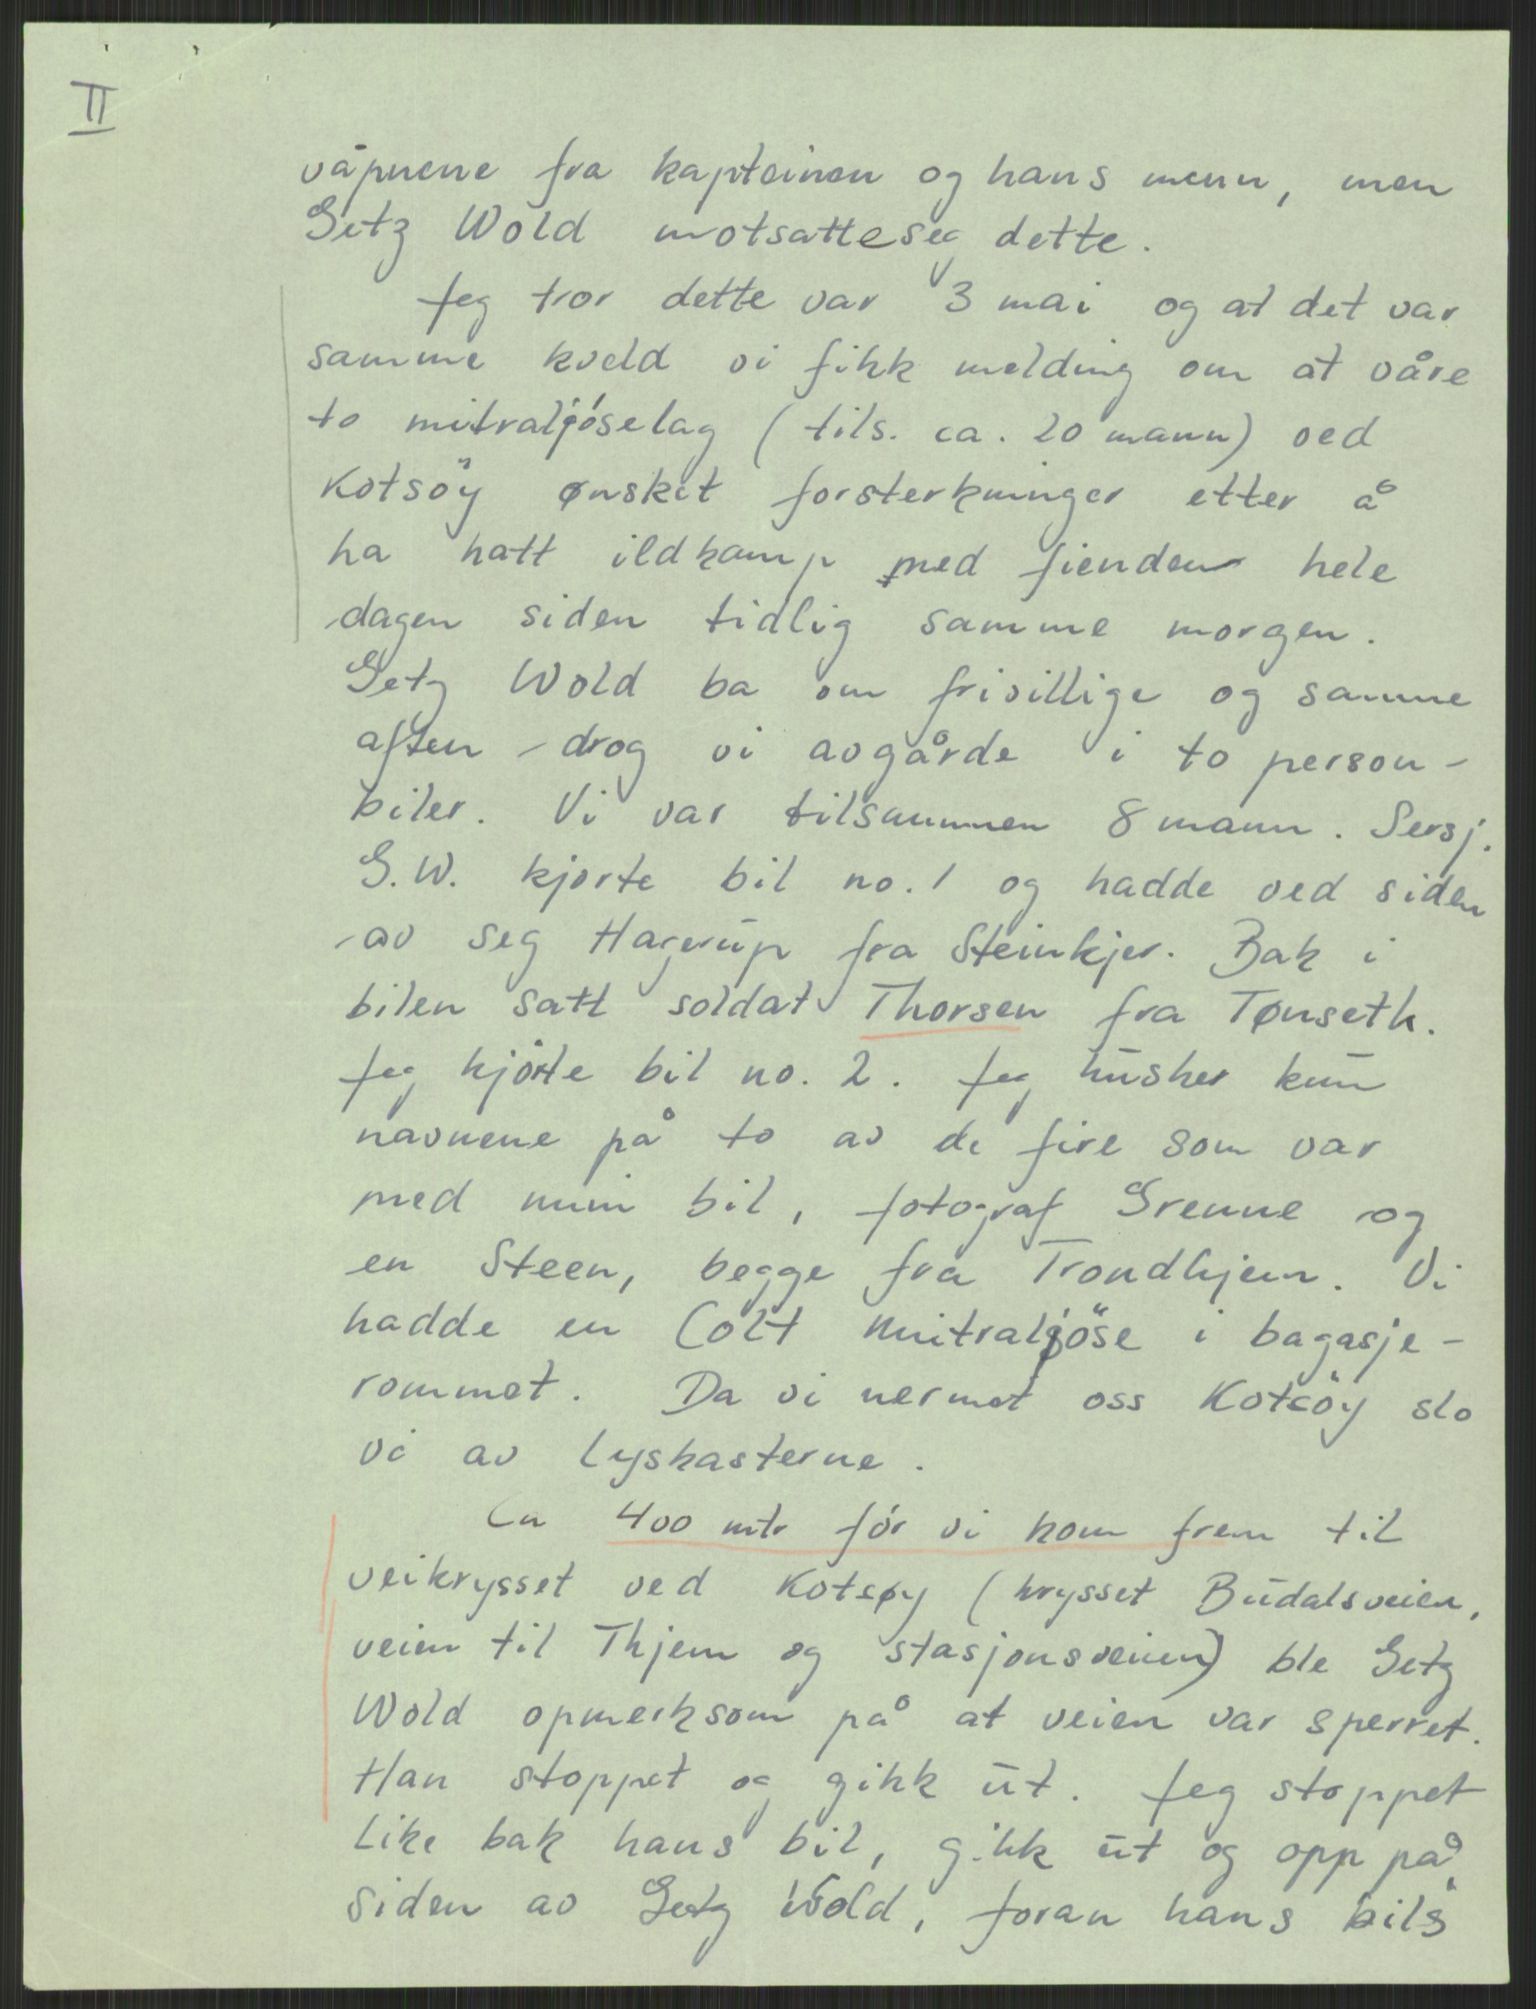 II
våpnene fra kapteinen og hans menn, men
Getz Wold motsatte seg dette.
Jeg tror dette var 3 mai og at det var
samme kveld vi fikk melding om at våre
to mitraljöselag (tils. ca. 20 mann) ved
Kotsöy ønsket forsterkninger etter å
ha hatt ildkamp med fienden hele
dagen siden tidlig samme morgen.
Getz Wold ba om frivillige og samme
aften drog vi avgårde i to person-
biler. Vi var tilsammen 8 mann. Sersj.
G.W. kjørte bil no. 1 og hadde ved siden
av seg Hagerup fra Steinkjer. Bak i
bilen satt soldat Thorsen fra Tønseth.
Jeg kjörte bil no. 2. Jeg husker kun
navnene på to av de fire som var
med min bil, fotograf Grenne og
en Steen, begge fra Trondhjem. Vi
hadde en Colt mitraljöse i bagasje-
rommet. Da vi nermet oss Kotsöy slo
vi av lyskasterne.
Ca 400 mtr för vi kom frem til
veikrysset ved Kotsøy (krysset Budalsveien,
veien til Thjem og stasjonsveien) ble Getz
Wold opmerksom på at veien var sperret.
Han stoppet og gikk ut. Jeg stoppet
like bak hans bil, gikk ut og opp på
siden av Getz Wold, foran hans bils